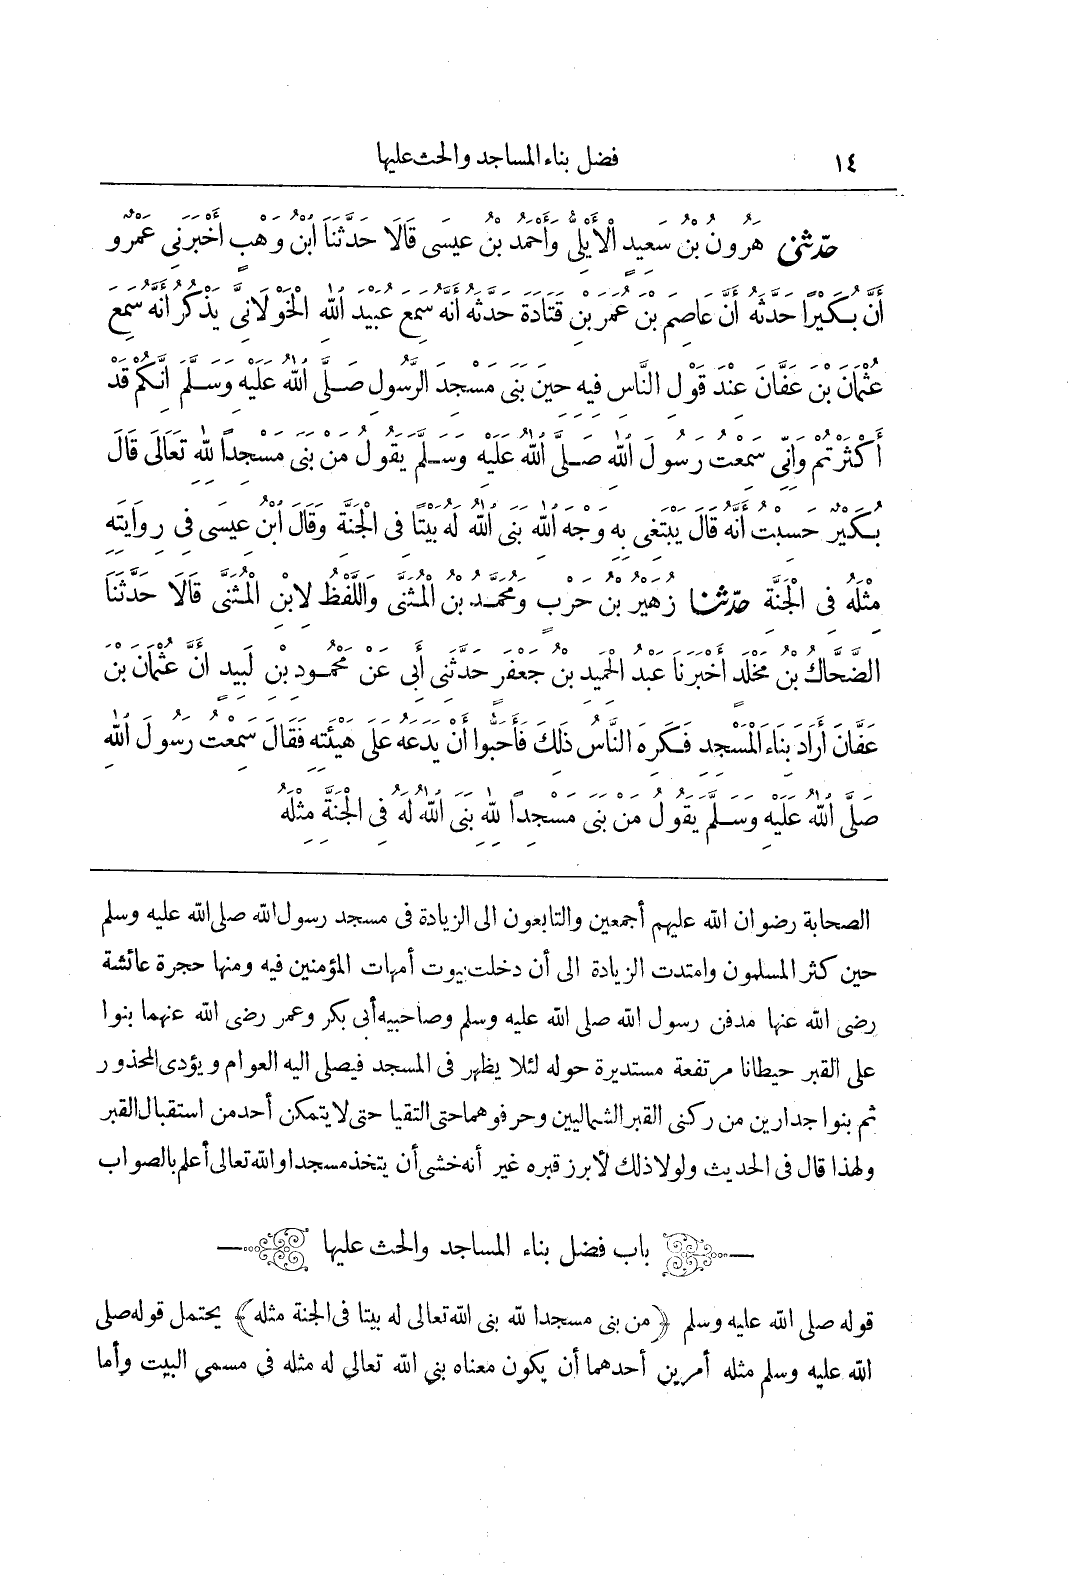 ١٤ فضل بناء المساجد والحث عليها
حَدَّثَنِى هٰرُونُ بْنُ سَعِيدٍ الْأَيْلِىُّ وَأَحْمَدُ بْنُ عِيسَى قَالَا حَدَّثَنَا ابْنُ وَهْبٍ أَخْبَرَنِى عَمْرٌو
أَنَّ بُكَيْرًا حَدَّثَهُ أَنَّ عَاصِمَ بْنَ عُمَرَ بْنِ قَتَادَةَ حَدَّثَهُ أَنَّهُ سَمِعَ عُبَيْدَ اللّٰهِ الْخَوْلَانِىَّ يَذْكُرُ أَنَّهُ سَمِعَ
عُثْمَانَ بْنَ عَفَّانَ عِنْدَ قَوْلِ النَّاسِ فِيهِ حِينَ بَنَى مَسْجِدَ الرَّسُولِ صَلَّى اللّٰهُ عَلَيْهِ وَسَلَّمَ إِنَّكُمْ قَدْ
أَكْثَرْتُمْ وَإِنِّى سَمِعْتُ رَسُولَ اللّٰهِ صَلَّى اللّٰهُ عَلَيْهِ وَسَلَّمَ يَقُولُ مَنْ بَنَى مَسْجِدًا لِلّٰهِ تَعَالَى قَالَ
بُكَيْرٌ حَسِبْتُ أَنَّهُ قَالَ يَبْتَغِى بِهِ وَجْهَ اللّٰهِ بَنَى اللّٰهُ لَهُ بَيْتًا فِى الْجَنَّةِ وَقَالَ ابْنُ عِيسَى فِى رِوَايَتِهِ
مِثْلَهُ فِى الْجَنَّةِ حَدَّثَنَا زُهَيْرُ بْنُ حَرْبٍ وَمُحَمَّدُ بْنُ الْمُثَنَّى وَاللَّفْظُ لِابْنِ الْمُثَنَّى قَالَا حَدَّثَنَا
الضَّحَّاكُ بْنُ مَخْلَدٍ أَخْبَرَنَا عَبْدُ الْحَمِيدِ بْنُ جَعْفَرٍ حَدَّثَنِى أَبِى عَنْ مَحْمُودِ بْنِ لَبِيدٍ أَنَّ عُثْمَانَ بْنَ
عَفَّانَ أَرَادَ بِنَاءَ الْمَسْجِدِ فَكَرِهَ النَّاسُ ذٰلِكَ فَأَحَبُّوا أَنْ يَدَعَهُ عَلَى هَيْئَتِهِ فَقَالَ سَمِعْتُ رَسُولَ اللّٰهِ
صَلَّى اللّٰهُ عَلَيْهِ وَسَلَّمَ يَقُولُ مَنْ بَنَى مَسْجِدًا لِلّٰهِ بَنَى اللّٰهُ لَهُ فِى الْجَنَّةِ مِثْلَهُ
الصحابة رضوان الله عليهم أجمعين والتابعون الى الزيادة فى مسجد رسول الله صلى الله عليه وسلم
حين كثر المسلمون وامتدت الزيادة الى أن دخلت بيوت أمهات المؤمنين فيه ومنها حجرة عائشة
رضى الله عنها مدفن رسول الله صلى الله عليه وسلم وصاحبيه أبى بكر وعمر رضى الله عنهما بنوا
على القبر حيطانا مرتفعة مستديرة حوله لئلا يظهر فى المسجد فيصلى اليه العوام ويؤدى المحذور
ثم بنوا جدارين من ركنى القبر الشماليين وحرفوهما حتى التقيا حتى لا يتمكن أحد من استقبال القبر
ولهذا قال فى الحديث ولولا ذلك لأبرز قبره غير أنه خشى أن يتخذ مسجدا والله تعالى أعلم بالصواب
باب فضل بناء المساجد والحث عليها
قوله صلى الله عليه وسلم ﴿من بنى مسجدا لله بنى الله تعالى له بيتا فى الجنة مثله﴾ يحتمل قوله صلى
الله عليه وسلم مثله أمرين أحدهما أن يكون معناه بني الله تعالي له مثله في مسمي البيت وأما